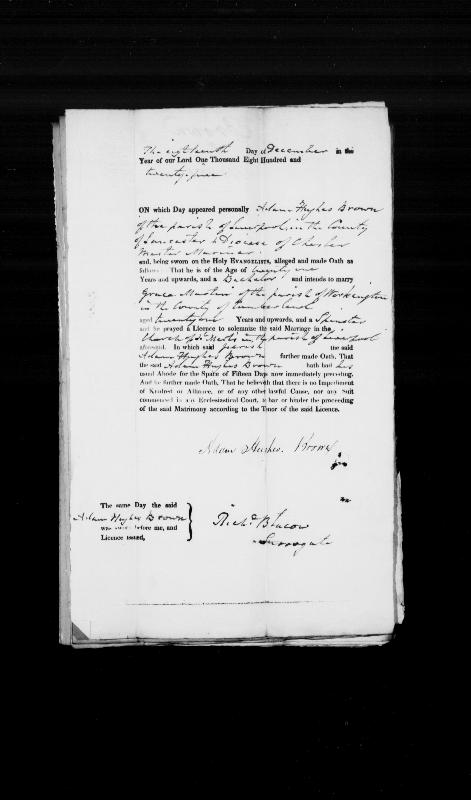 The eighteenth Day of December in the
Year of our Lord One Thousand Eight Hundred and
twenty
ON which Day appeared personally Adam Hughes Brown
of the parish of Liverpool, in the County
of Lancaster & Diocese of Chester
Master Mariner
and, being sworn on the Holy EVANGELISTS, alleged and made Oath as
follows: That he is of the Age of twenty one
Years and upwards, and a Bachelor and intends to marry
Grace Martin of the parish of Workington
in the County of Cumberland
aged twenty one Years and upwards, and a Spinster
and he prayed a Licence to solemnize the said Marriage in the
Church of St. in the parish of Liverpool
aforesaid. In which said parish the said
Adam Hughes Brown further made Oath, That
the said Adam Hughes Brown hath had his
usual Abode for the Space of Fifteen Days now immediately preceding.
And he further made Oath, That he believeth that there is no Impediment
of Kindred or Alliance, or of any other lawful Cause, nor any Suit
commenced in any Ecclesiastical Court, to bar or hinder the proceeding
of the said Matrimony according to the Tenor of the said Licence.
Adam Hughes. Brown
The same Day the said
Adam Hughes Brown
was sworn before me, and
Licence issued,
Richd. Blacow
Surrogate